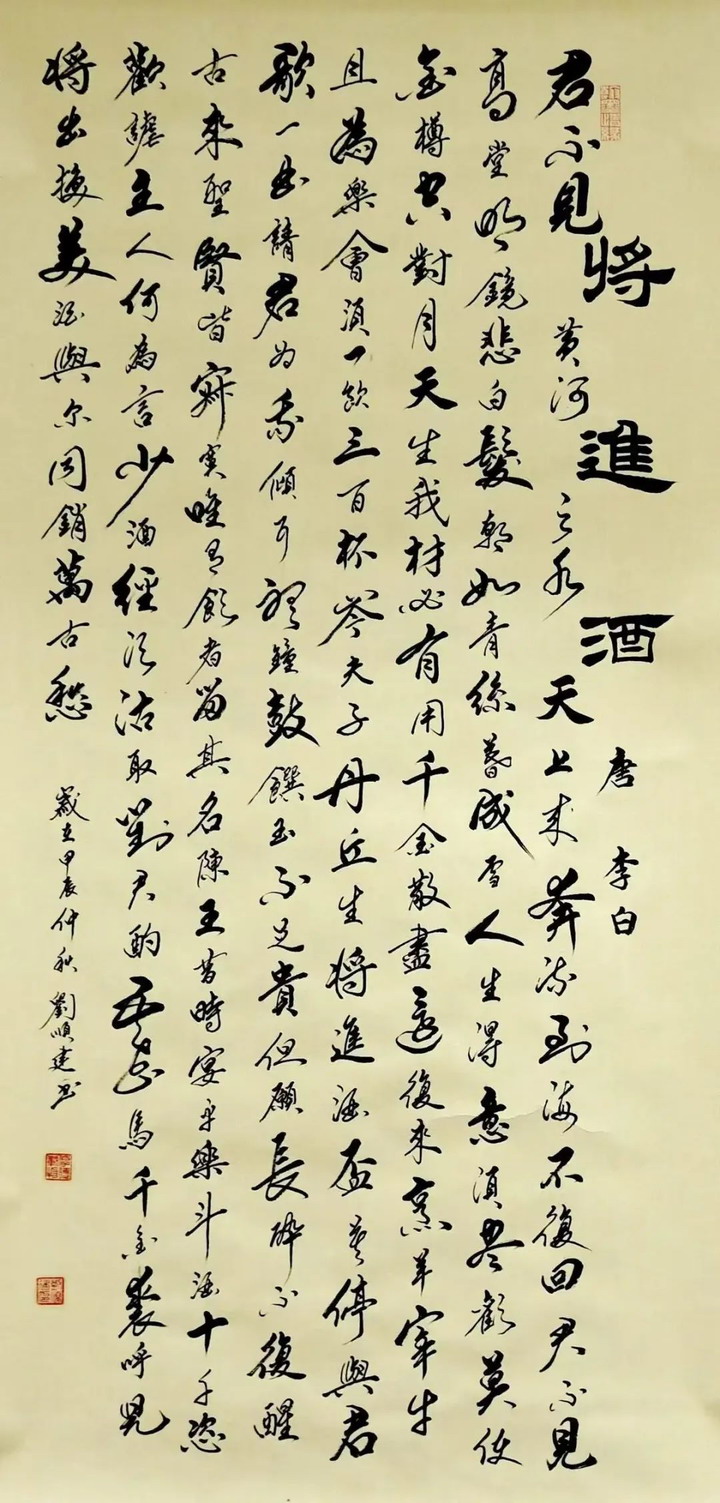 將進酒 唐 李白
君不見黃河之水天上來奔流到海不復回君不見
高堂明鏡悲白髮朝如青絲暮成雪人生得意須盡歡莫使
金樽空對月天生我材必有用千金散盡還復來烹羊宰牛
且為樂會須一飲三百杯岑夫子丹丘生將進酒盃莫停與君
歌一曲請君為我傾耳聽鐘鼓饌玉不足貴但願長醉不復醒
古來聖賢皆寂寞唯有飲者留其名陳王昔時宴平樂斗酒十千恣
歡謔主人何為言少酒經須沽取對君酌五花馬千金裘呼兒
將出換美酒與尔同銷萬古愁
歲在甲辰仲秋 劉順建書